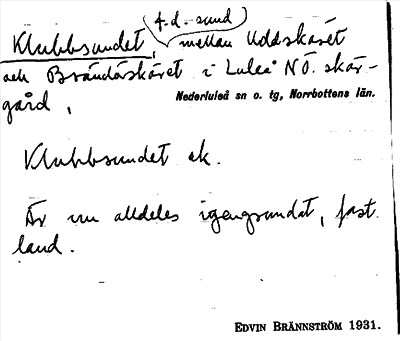 f. d. sund
Klubbsundet, mellan Uddskäret
och Brändöskäret i Luleå NÖ. skär-
gård,
Nederluleå sn o. tg, Norrbottens län.
Klubbsundet ak.
Är nu alldeles igengrundat, fast
land.
EDVIN BRÄNNSTRÖM 1931.